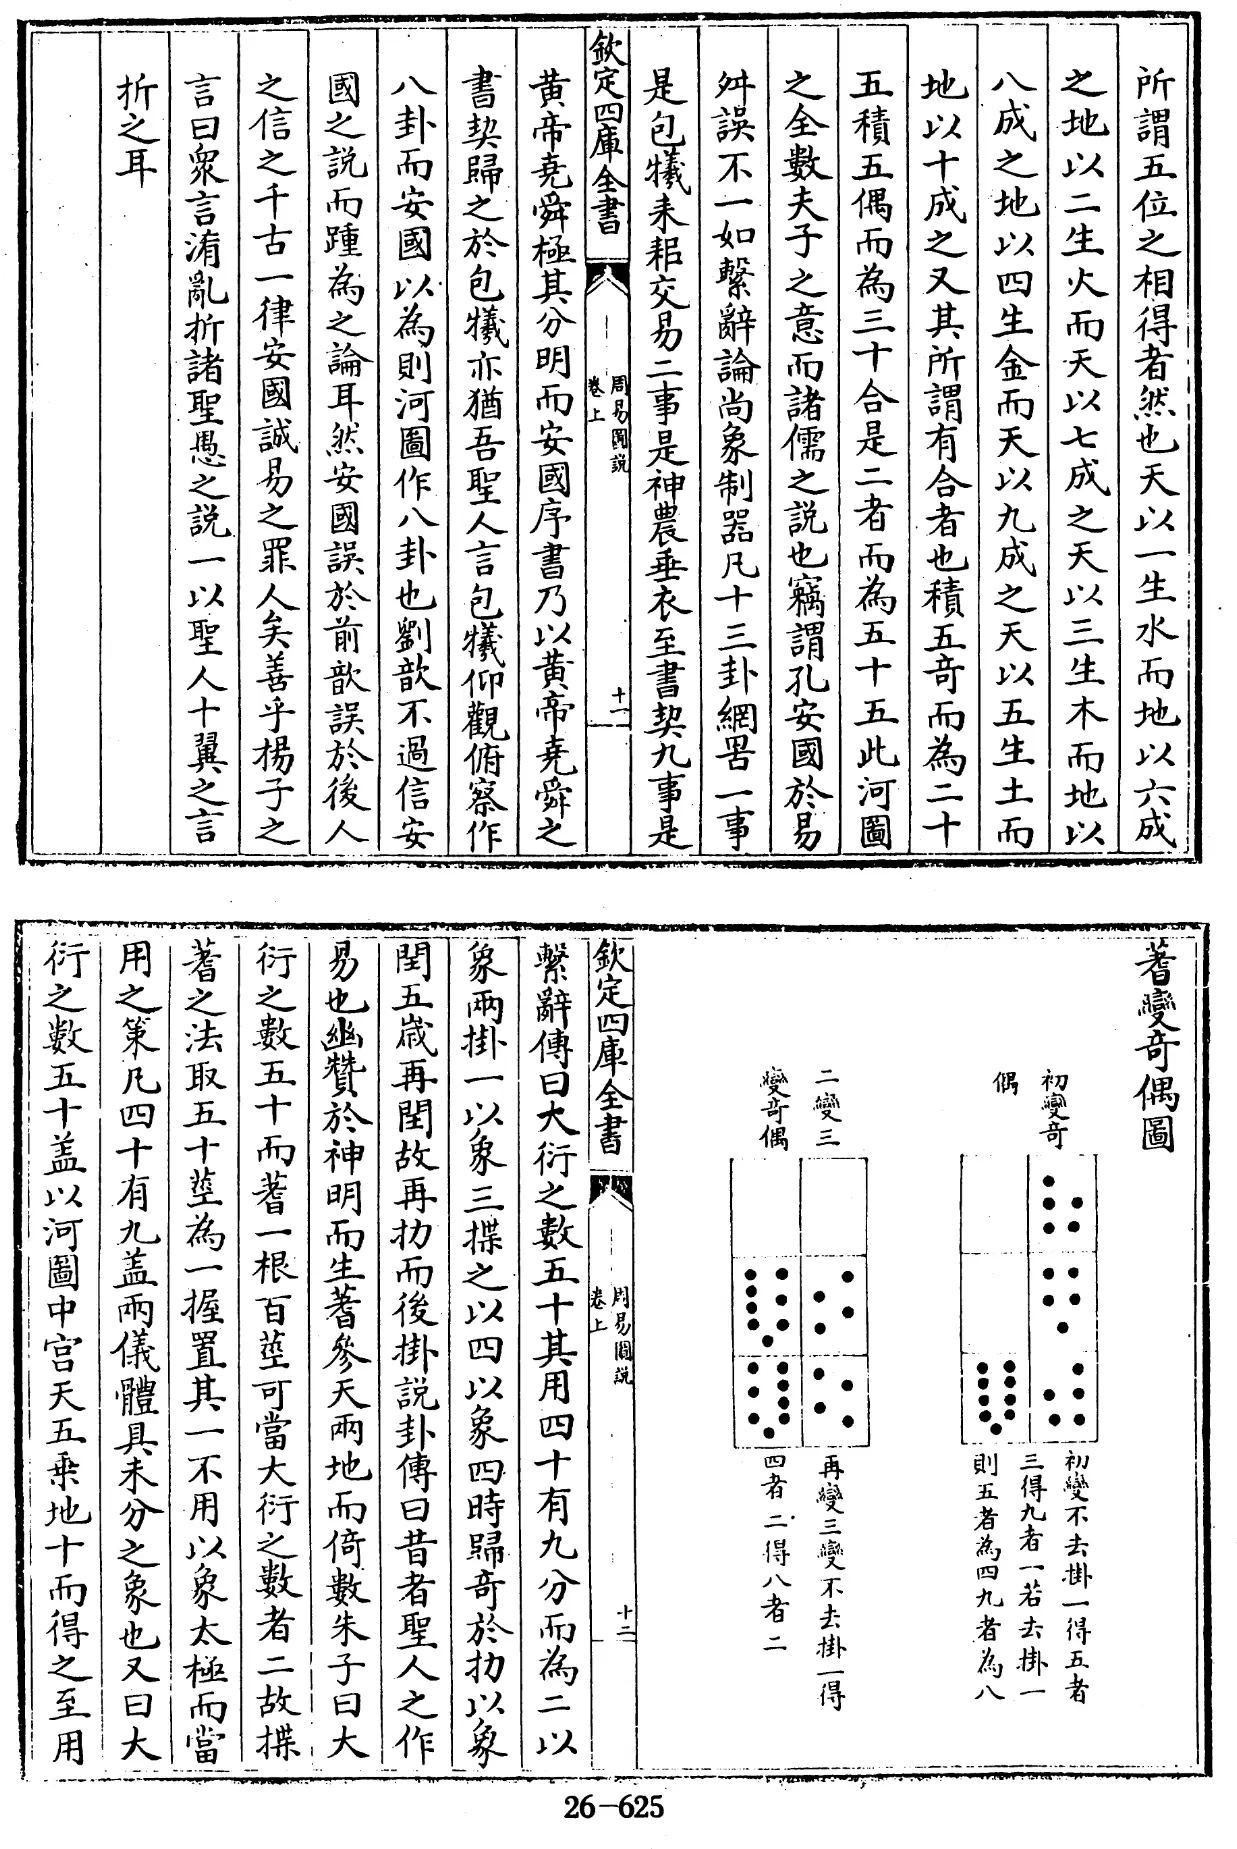 所謂五位之相得者然也天以一生水而地以六成
之地以二生火而天以七成之天以三生木而地以
八成之地以四生金而天以九成之天以五生土而
地以十成之又其所謂有合者也積五奇而為二十
五積五偶而為三十合是二者而為五十五此河圖
之全數夫子之意而諸儒之說也竊謂孔安國於易
舛誤不一如繫辭論尚象制器凡十三卦網罟一事
是包犧耒耜交易二事是神農垂衣至書契九事是
欽定四庫全書
周易圖說
卷上
十一
黄帝堯舜極其分明而安國序書乃以黄帝堯舜之
書契歸之於包犧亦猶吾聖人言包犧仰觀俯察作
八卦而安國以為則河圖作八卦也劉歆不過信安
國之說而踵為之論耳然安國誤於前歆誤於後人
之信之千古一律安國誠易之罪人矣善乎楊子之
言曰衆言淆亂折諸聖愚之說一以聖人十翼之言
折之耳
蓍變奇偶圖
初變奇
偶
初變不去掛一得五者
三得九者一若去掛一
則五者為四九者為八
二變三
變奇偶
再變三變不去掛一得
四者二得八者二
欽定四庫全書
周易圖說
卷上
十二
繫辭傳曰大衍之數五十其用四十有九分而為二以
象兩掛一以象三揲之以四以象四時歸奇於扐以象
閏五歲再閏故再扐而後掛說卦傳曰昔者聖人之作
易也幽贊於神明而生蓍參天兩地而倚數朱子曰大
衍之數五十而蓍一根百莖可當大衍之數者二故揲
蓍之法取五十莖為一握置其一不用以象太極而當
用之策凡四十有九盖兩儀體具未分之象也又曰大
衍之數五十盖以河圖中宮天五乗地十而得之至用
26-625